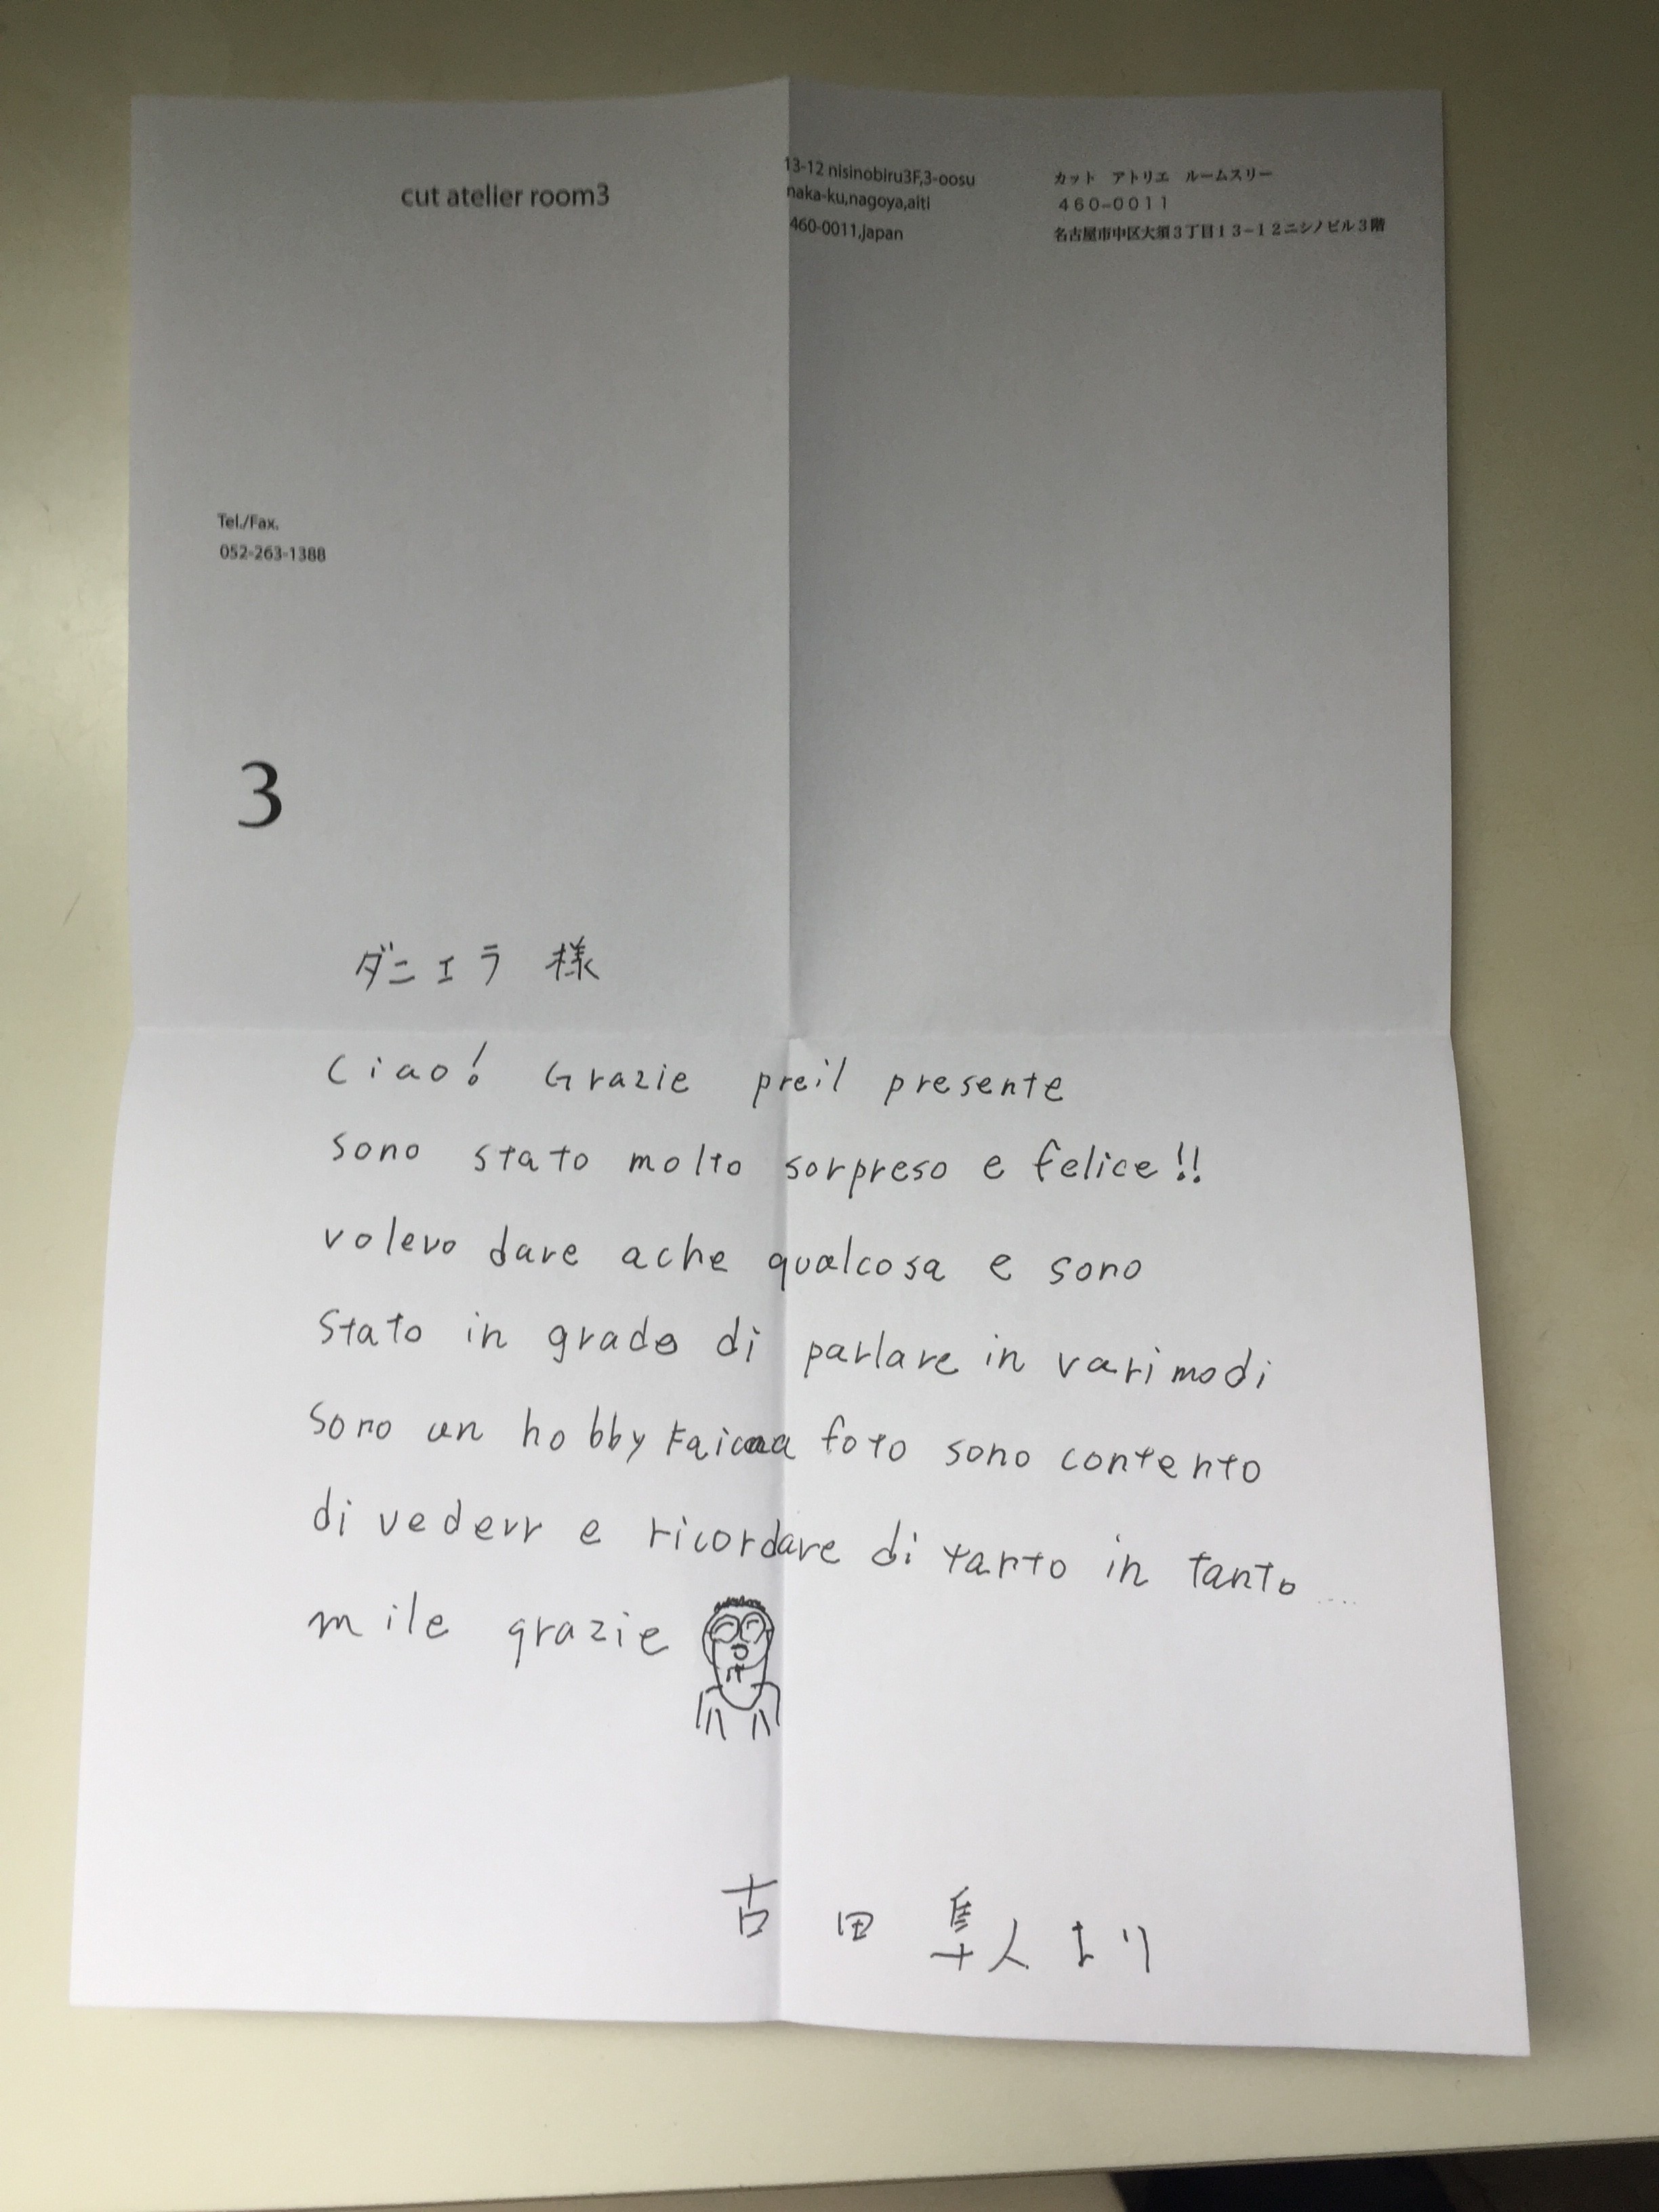 cut atelier room3
13-12 nisinobiru3F,3-oosu
naka-ku,nagoya,aiti
460-0011,japan
カット アトリエ ルームスリー
460-0011
名古屋市中区大須3丁目13-12ニシノビル3階
Tel./Fax.
052-263-1388
3
ダニエラ 様
Ciao! Grazie preil presente
sono stato molto sorpreso e felice!!
volevo dare ache qualcosa e sono
stato in grado di parlare in vari modi
sono un hobby foto sono contento
di vederr e ricordare di tanto in tanto...
mile grazie
古田隼人より